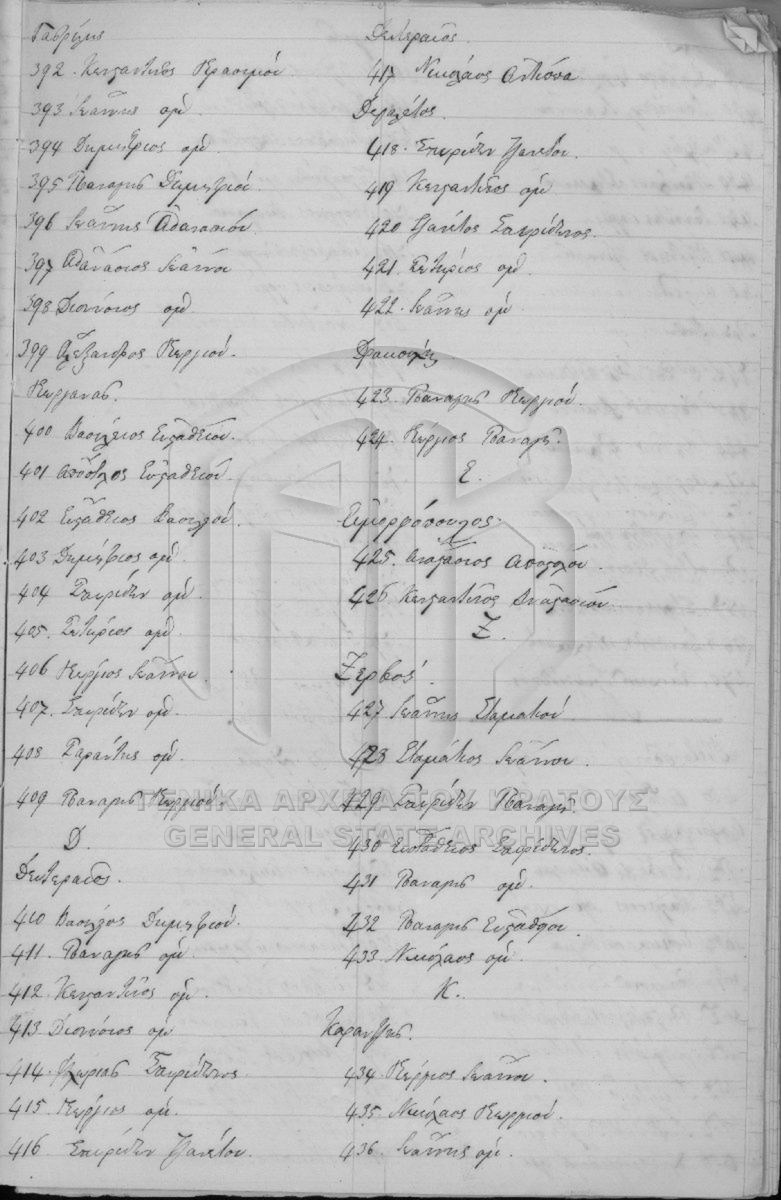 Γαβρίλης
392. Κωνσταντίνος Γερασίμου.
393 Ιωάννης ομδ.
394 Δημήτριος ομδ.
395 Παναγής Δημητρίου.
396 Ιωάννης Αθανασίου.
397 Αθανάσιος Ιωάννου
398 Διονύσιος ομδ
399 Αλέξανδρος Γεωργίου.
400 Βασίλειος Ευσταθίου.
401 Απόστολος Ευσταθίου.
402 Ευστάθιος Βασιλείου.
403 Δημήτριος ομδ.
404 Σπυρίδων ομδ.
405. Σωτήριος ομδ.
406 Γεώργιος Ιωάννου.
407. Σπυρίδων ομδ.
408 Γεράντης ομδ.
409 Παναγής Γεωργίου.
Δ.
Δευτεραίος.
410 Βασίλειος Δημητρίου.
411. Παναγής ομδ.
412. Κωνσταντίνος ομδ.
413 Διονύσιος ομδ
414. Σπυρίδωνος
415. Γεώργιος ομδ.
416 Σπυρίδων Τζανέτου.
Δευτεραίος.
417 Νικόλαος Αντωνίου
418. Σπυρίδων Τζανέτου.
419 Κωνσταντίνος ομδ
420 Τζανέτος Σπυρίδωνος.
421. Σωτήριος ομδ.
422. Ιωάννης ομδ.
423. Παναγής Γεωργίου.
424. Γεώργιος Παναγή.
Ε.
Ευμορφόπουλος.
425. Αναστάσιος Αποστόλου.
426 Κωνσταντίνος Αναστασίου.
Ζ.
Ζερβός.
427 Ιωάννης Σταματίου.
428 Σταμάτιος Ιωάννου.
429. Σπυρίδων Παναγή.
430 Ευστάθιος Σπυρίδωνος.
431 Παναγής ομδ.
432 Παναγής Ευσταθίου.
433 Νικόλαος ομδ.
Κ.
Καραντζής.
434. Γεώργιος Ιωάννου.
435. Νικόλαος Γεωργίου.
436. Ιωάννης ομδ.
ΓΕΝΙΚΑ ΑΡΧΕΙΑ ΤΟΥ ΚΡΑΤΟΥΣ
GENERAL STATE ARCHIVES